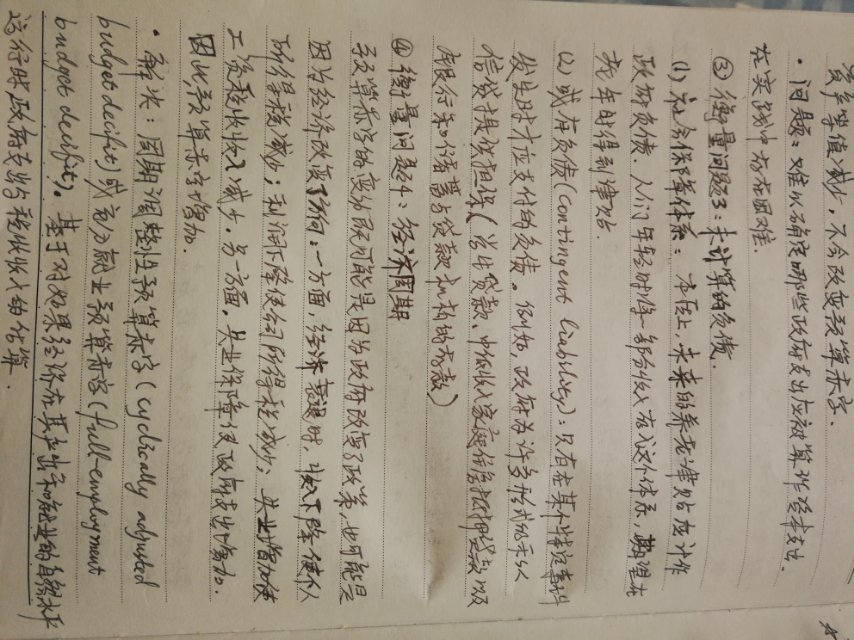 资产等值减少,不会改变预算赤字.
· 问题:难以确定哪些政府支出应被算作资本支出.
在实践中存在困难.
③ 衡量问题3:未计算的负债.
(1) 社会保障体系:本质上,未来的养老津贴应计作
政府负债.人们年轻时将一部分收入存入这个体系,期望在
老年时得到津贴.
(2) 或有负债(contingent liability):只有在某个特定事件
发生时才应支付的负债。例如,政府为许多形式的私人
信贷提供担保(学生贷款、中低收入家庭住房抵押贷款以及
银行和储蓄与贷款机构的存款)
④ 衡量问题4:经济周期
预算赤字的变动既可能是因为政府改变了政策,也可能是
因为经济改变了方向.一方面,经济衰退时,收入下降使个人
所得税减少;利润下降使公司所得税减少;失业增加使
工资税收收入减少.另一方面,失业保障使政府支出增加.
因此预算赤字增加.
· 解决:周期调整性预算赤字(cyclically adjusted
budget decifit)或充分就业预算赤字(full-employment
budget decifit)。基于对如果经济在其产出和就业的自然水平
运行时政府支出与税收收入的估算.